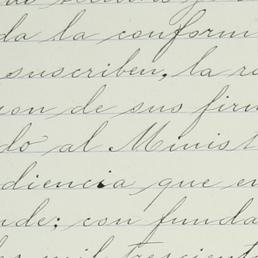 da la conform
suscriben, la ra
con de sus firm
do al Minist
diencia que en
nde; con funda
mil trescient